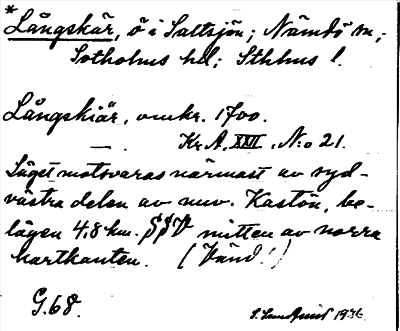 * Långskär, ö i Saltsjön; Nämdö sn.;
Sotholms hd; Sthlms l.
Långskiär, omkr. 1700.
— Kr. A. XXII, N:o 21.
Läget motsvaras närmast av syd-
västra delen av nuv. Kastön, be-
lägen 4,8 km. SSV mitten av norra
kartkanten. (Vänd!)
G. 68.
S. Landquist 1936